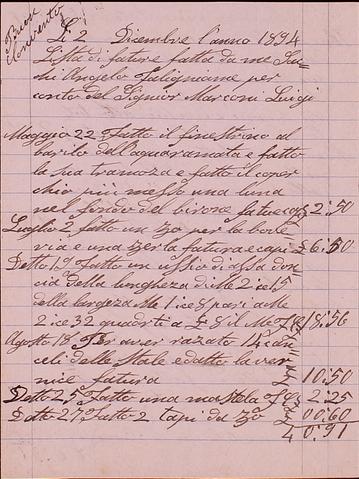 Buon
Convento
Li 2 Dicembre l'anno 1894
Lista di fature fatta da me
Angelo Faligniame per
conto del Signior Marconi Luigi
Maggio 22 Fatto il finestrino al
barilo dell'aquaramata e fatto
la sua tramoza e fatto il coper
chio più messo una luna
nel fondo del birone fatura £ 2:50
Luglio 2 fatto un zo per la bote
via e una zerla fatura e capi £ 6:50
Detto 19 Fatto un ussio di assa don
cia della lungheza di Me 2 ce 15
della largeza Me 1 ce 8 pari a Me
2 ce 32 quardti a £ 8 il Me £ 18:56
Agosto 18 Per aver razato 14 can
celi delle Stale e datto la ver
nice fatura £ 10:50
Detto 25 Fatto una mastela £ 2:25
Detto 27 Fatto 2 tapi da zo £ 00:60
£ 0:91